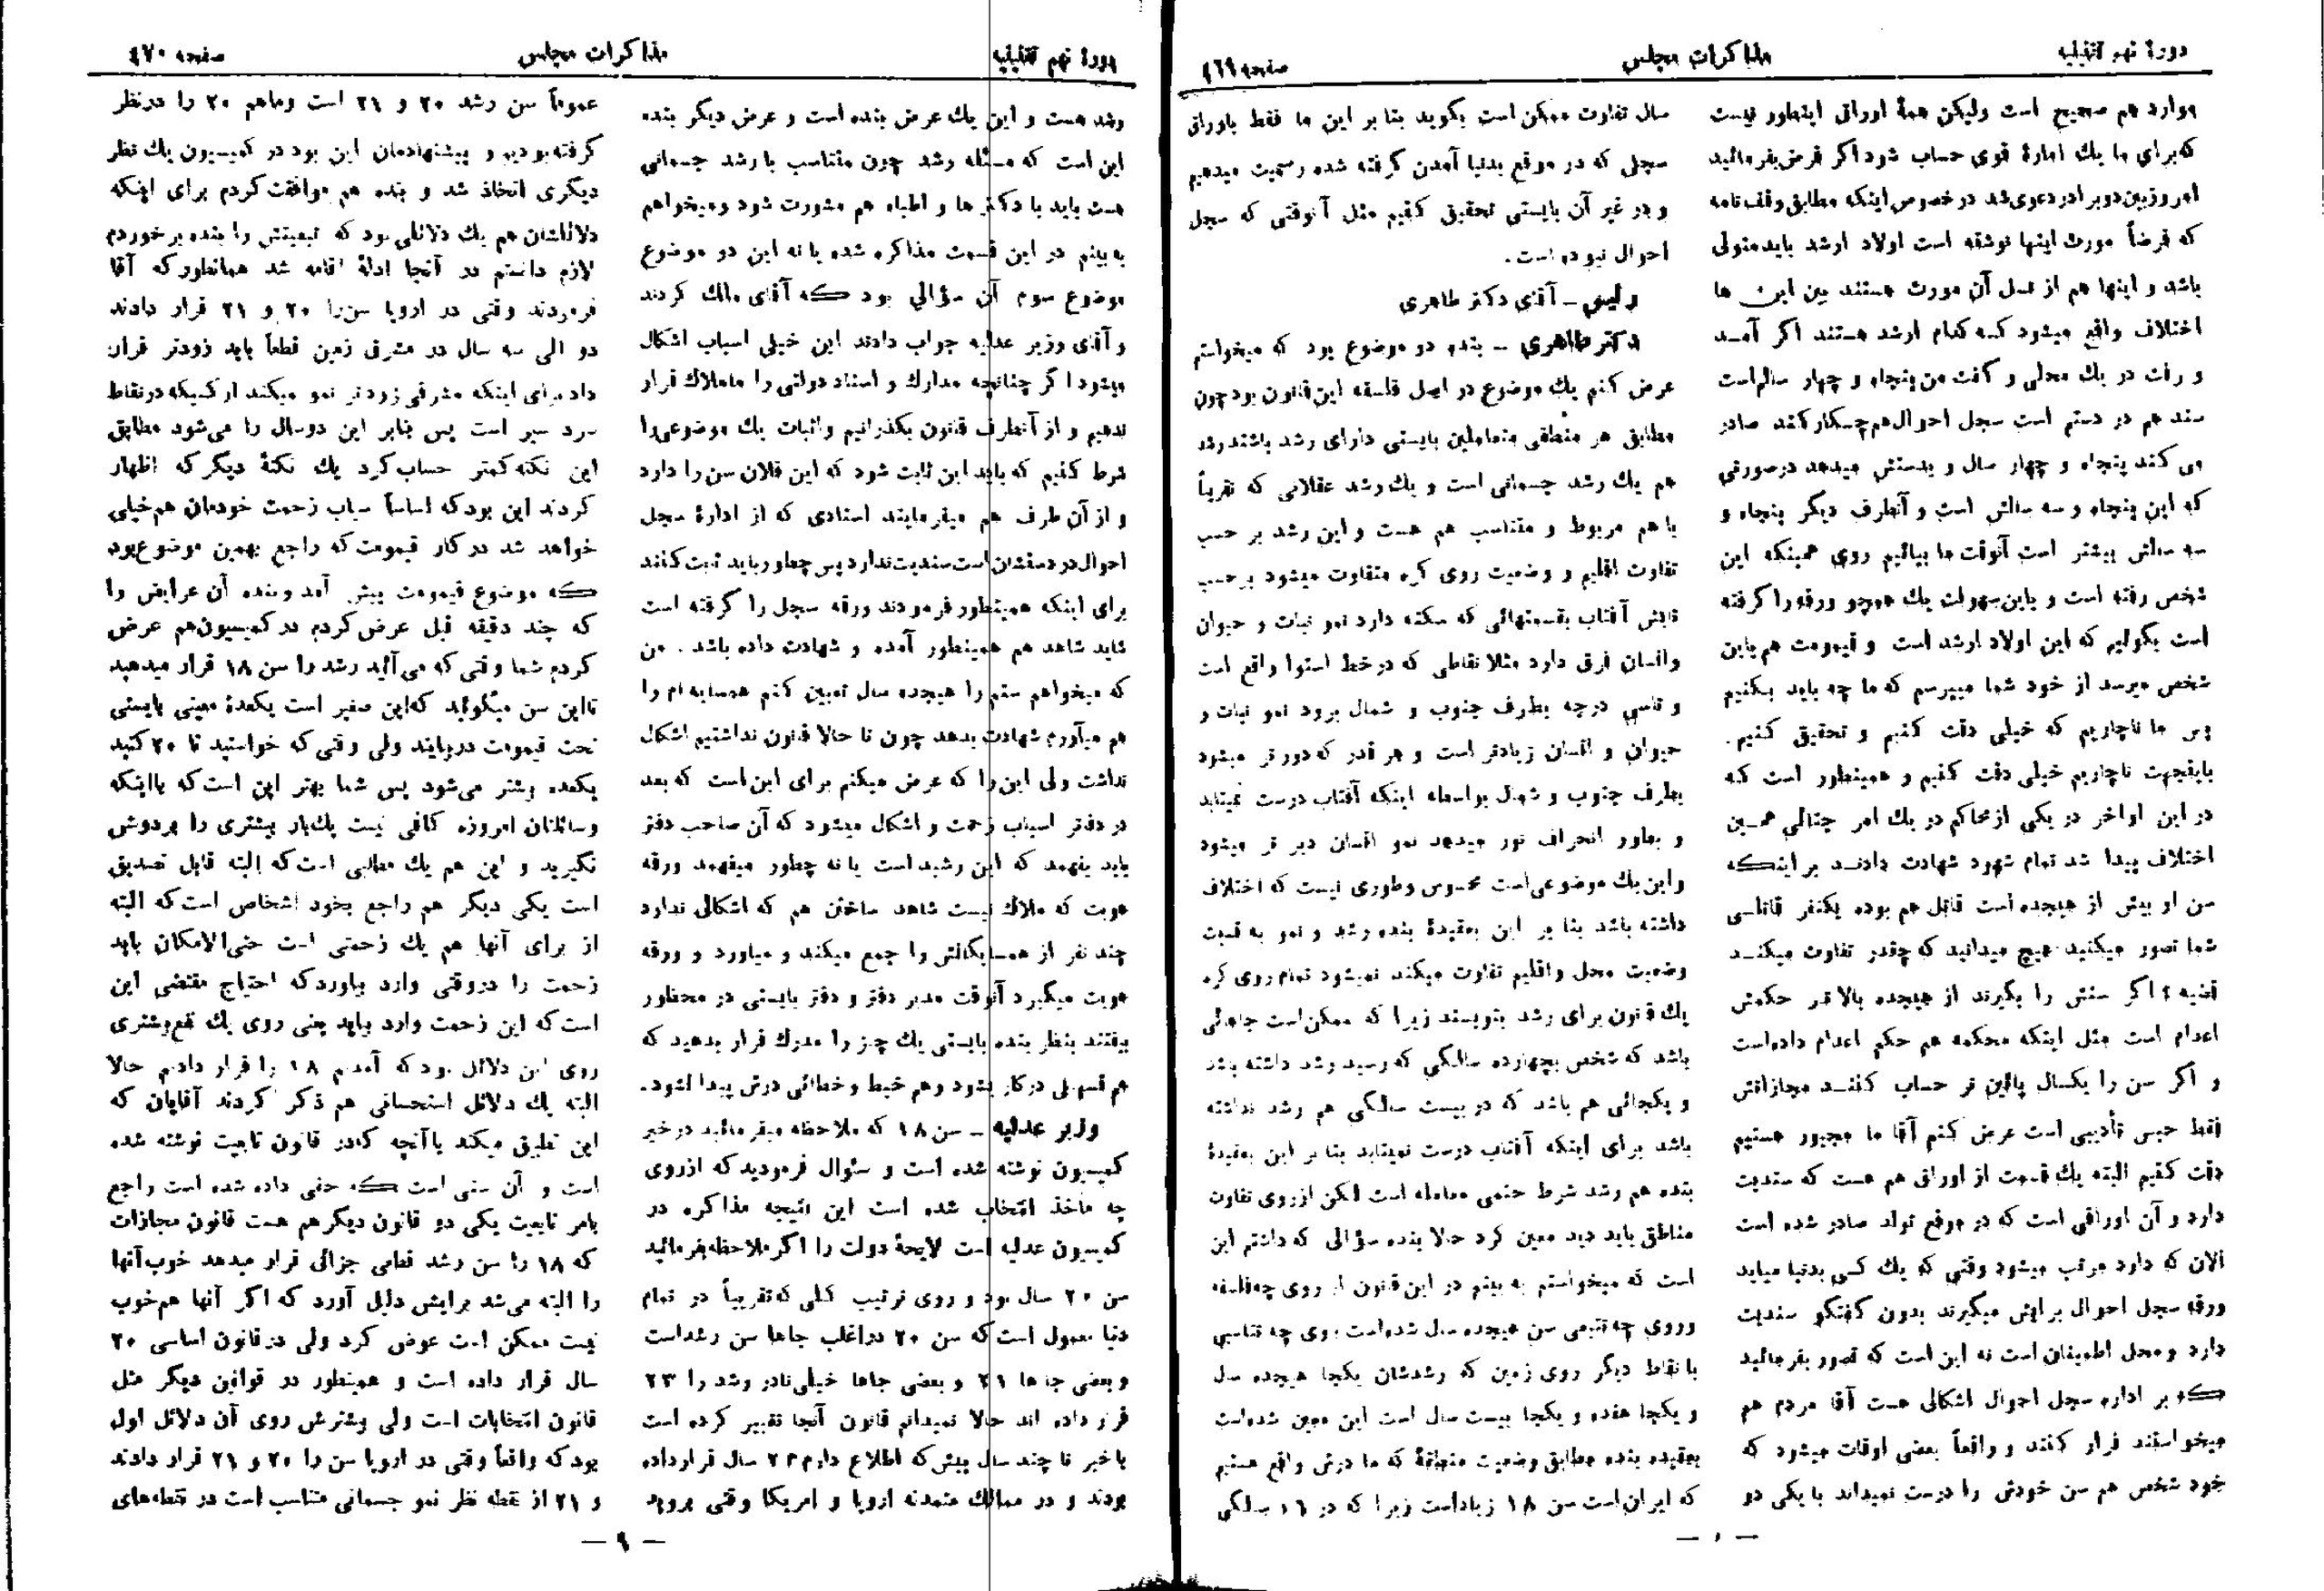 دورهٔ نهم تقنینیه
مذاکرات مجلس
صفحه ۴۶۹
موارد هم صحیح است ولیکن همهٔ اوراق اینطور نیست
که برای ما یك امارهٔ قوی حساب شود اگر فرض بفرمائید
امروز بین دو برادر دعوی شد در خصوص اینکه مطابق وقف نامه
که فرضاً مورث اینها نوشته است اولاد ارشد باید متولی
باشد و اینها هم از نسل آن مورث هستند بین این ها
اختلاف واقع میشود که کدام ارشد هستند اگر آمد
و رفت در یك محلی و گفت من پنجاه و چهار سالم است
سند هم در دستم است سجل احوال هم چکار کند صادر
می کند پنجاه و چهار سال و بدستش میدهد در صورتی
که این پنجاه و سه سالش است و آنطرف دیگر پنجاه و
سه سالش بیشتر است آنوقت ما بیائیم روی همینکه این
شخص رفته است و باین سهولت یك همچو ورقه را گرفته
است بگوئیم که این اولاد ارشد است و قیمومت هم باین
شخص میرسد از خود شما میپرسم که ما چه باید بکنیم
پس ما ناچاریم که خیلی دقت کنیم و تحقیق کنیم.
باینجهت ناچاریم خیلی دقت کنیم و همینطور است که
در این اواخر در یکی از محاکم در یك امر جنائی همین
اختلاف پیدا شد تمام شهود شهادت دادند بر اینکه
سن او بیش از هیجده است قاتل هم بوده یکنفر قاتلی
شما تصور میکنید هیچ میدانید که چقدر تفاوت میکند
قضیه ؟ اگر سنش را بگیرند از هیجده بالاتر حکمش
اعدام است مثل اینکه محکمه هم حکم اعدام داده است
و اگر سن را یکسال پائین تر حساب کنند مجازاتش
فقط حبس تأدیبی است عرض کنم آقا ما مجبور هستیم
دقت کنیم البته یك قسمت از اوراق هم هست که سندیت
دارد و آن اوراقی است که در موقع تولد صادر شده است
الان که دارد مرتب میشود وقتی که یك کسی بدنیا میاید
ورقه سجل احوال برایش میگیرند بدون گفتگو سندیت
دارد و محل اطمینان است نه این است که تصور بفرمائید
که بر اداره سجل احوال اشکالی هست آقا مردم هم
میخواستند فرار کنند و واقعاً بعضی اوقات میشود که
خود شخص هم سن خودش را درست نمیداند با یکی دو
سال تفاوت ممکن است بگوید بنا بر این ما فقط باوراق
سجلی که در موقع بدنیا آمدن گرفته شده رسمیت میدهیم
و در غیر آن بایستی تحقیق کنیم مثل آنوقتی که سجل
احوال نبوده است.
رئیس ــ آقای دکتر طاهری
دکتر طاهری ــ بنده دو موضوع بود که میخواستم
عرض کنم یك موضوع در اصل فلسفه این قانون بود چون
مطابق هر منطقی متعاملین بایستی دارای رشد باشند رشد
هم یك رشد جسمانی است و یك رشد عقلانی که تقریباً
با هم مربوط و متناسب هم هست و این رشد بر حسب
تفاوت اقلیم و وضعیت روی کره متفاوت میشود بر حسب
تابش آفتاب بقسمتهائی که سکنه دارد نمو نبات و حیوان
و انسان فرق دارد مثلا نقاطی که در خط استوا واقع است
و تاسی درجه بطرف جنوب و شمال برود نمو نبات و
حیوان و انسان زیادتر است و هر قدر که دورتر میشود
بطرف جنوب و شمال بواسطه اینکه آفتاب درست نمیتابد
و بطور انحراف نور میدهد نمو انسان دیر تر میشود
و این یك موضوعی است محسوس و طوری نیست که اختلاف
داشته باشد بنا بر این بعقیدهٔ بنده رشد و نمو به نسبت
وضعیت محل و اقلیم تفاوت میکند نمیشود تمام روی کره
یك قانون برای رشد بنویسند زیرا که ممکن است جاهائی
باشد که شخص بچهارده سالگی که رسید رشد داشته باشد
و یکجائی هم باشد که در بیست سالگی هم رشد نداشته
باشد برای اینکه آفتاب درست نمیتابد بنا بر این بعقیدهٔ
بنده هم رشد شرط حتمی معامله است لکن از روی تفاوت
مناطق باید دید معین کرد حالا بنده سؤالی که داشتم این
است که میخواستم به بینم در این قانون از روی چه فلسفه
و روی چه تتبعی سن هیجده سال شده است روی چه تناسبی
با نقاط دیگر روی زمین که رشدشان یکجا هیجده سال
و یکجا هفده و یکجا بیست سال است این معین شده است
بعقیده بنده مطابق وضعیت منطقهٔ که ما درش واقع هستیم
که ایران است سن ۱۸ زیاد است زیرا که در ۱۶ سالگی
دورهٔ نهم تقنینیه
مذاکرات مجلس
صفحه ۴۷۰
رشد هست و این یك عرض بنده است و عرض دیگر بنده
این است که مسئله رشد چون متناسب با رشد جسمانی
هست باید با دکتر ها و اطباء هم مشورت شود و میخواهم
به بینم در این قسمت مذاکره شده یا نه این دو موضوع
موضوع سوم آن سؤالی بود که آقای ملك کردند
و آقای وزیر عدلیه جواب دادند این خیلی اسباب اشکال
میشود اگر چنانچه مدارك و اسناد دولتی را ما ملاك قرار
ندهیم و از آنطرف قانون بگذرانیم و اثبات یك موضوعی را
شرط کنیم که باید این ثابت شود که این فلان سن را دارد
و از آن طرف هم میفرمایند اسنادی که از ادارهٔ سجل
احوال در دستشان است سندیت ندارد پس چطور باید ثبت کنند
برای اینکه همینطور فرمودند ورقه سجل را گرفته است
شاید شاهد هم همینطور آمده و شهادت داده باشد . من
که میخواهم سنم را هیجده سال تعیین کنم همسایه ام را
هم میآورم شهادت بدهد چون تا حالا قانون نداشتیم اشکال
نداشت ولی این را که عرض میکنم برای این است که بعد
در دفاتر اسباب زحمت و اشکال میشود که آن صاحب دفتر
باید بفهمد که این رشید است یا نه چطور میفهمد ورقه
هویت که ملاك نیست شاهد ساختن هم که اشکالی ندارد
چند نفر از همسایگانش را جمع میکند و میاورد و ورقه
هویت میگیرد آنوقت مدیر دفتر و دفتر بایستی در محظور
بیفتند بنظر بنده بایستی یك چیز را مدرك قرار بدهید که
هم تسهیلی در کار بشود و هم خبط و خطائی درش پیدا نشود.
وزیر عدلیه ــ سن ۱۸ که ملاحظه میفرمائید در خبر
کمیسیون نوشته شده است و سئوال فرمودید که از روی
چه مأخذ انتخاب شده است این نتیجه مذاکره در
کمیسیون عدلیه است لایحهٔ دولت را اگر ملاحظه بفرمائید
سن ۲۰ سال بود و روی ترتیب کلی که تقریباً در تمام
دنیا معمول است که سن ۲۰ در اغلب جاها سن رشد است
و بعضی جا ها ۲۱ و بعضی جاها خیلی نادر رشد را ۲۳
قرار داده اند حالا نمیدانم قانون آنجا تغییر کرده است
یا خیر تا چند سال پیش که اطلاع دارم ۲۳ سال قرار داده
بودند و در ممالك متمدنه اروپا و امریکا وقتی بروید
عموماً سن رشد ۲۰ و ۲۱ است و ما هم ۲۰ را در نظر
گرفته بودیم و پیشنهادمان این بود در کمیسیون یك نظر
دیگری اتخاذ شد و بنده هم موافقت کردم برای اینکه
دلائلشان هم یك دلائلی بود که تبعیتش را بنده بر خوردم
لازم دانستم در آنجا ادلهٔ اقامه شد همانطور که آقا
فرمودند وقتی در اروپا سن را ۲۰ و ۲۱ قرار دادند
دو الی سه سال در مشرق زمین قطعاً باید زودتر قرار
داد برای اینکه مشرقی زودتر نمو میکند از کسیکه در نقاط
سرد سیر است پس بنابر این دو سال را می شود مطابق
این نکته کمتر حساب کرد یك نکتهٔ دیگر که اظهار
کردند این بود که اساساً اسباب زحمت خودمان هم خیلی
خواهد شد در کار قیمومت که راجع بهمین موضوع بود
که موضوع قیمومت پیش آمد و بنده آن عرایض را
که چند دقیقه قبل عرض کردم در کمیسیون هم عرض
کردم شما وقتی که می آئید رشد را سن ۱۸ قرار میدهید
تا این سن میگوئید که این صغیر است یکعدهٔ معینی بایستی
تحت قیمومت در بیایند ولی وقتی که خواستید تا ۲۰ کنید
یکعده بیشتر می شود پس شما بهتر این است که با اینکه
وسائلتان امروزه کافی نیست یك بار بیشتری را بر دوش
نگیرید و این هم یك مطلبی است که البته قابل تصدیق
است یکی دیگر هم راجع بخود اشخاص است که البته
از برای آنها هم یك زحمتی است حتی الامکان باید
زحمت را در وقتی وارد بیاورد که احتیاج مقتضی این
است که این زحمت وارد بیاید یعنی روی یك نفع بیشتری
روی این دلائل بود که آمدیم ۱۸ را قرار دادیم حالا
البته یك دلائل استحسانی هم ذکر کردند آقایان که
این تطبیق میکند با آنچه که در قانون تابعیت نوشته شده
است و آن سنی است که حقی داده شده است راجع
بامر تابعیت یکی دو قانون دیگر هم هست قانون مجازات
که ۱۸ را سن رشد قطعی جزائی قرار میدهد خوب آنها
را البته می شد برایش دلیل آورد که اگر آنها هم خوب
نیست ممکن است عوض کرد ولی در قانون اساسی ۲۰
سال قرار داده است و همینطور در قوانین دیگر مثل
قانون انتخابات است ولی بیشترش روی آن دلائل اول
بود که واقعاً وقتی در اروپا سن را ۲۰ و ۲۱ قرار دادند
و ۲۱ از نقطه نظر نمو جسمانی متناسب است در نقطه های
— ۹ —